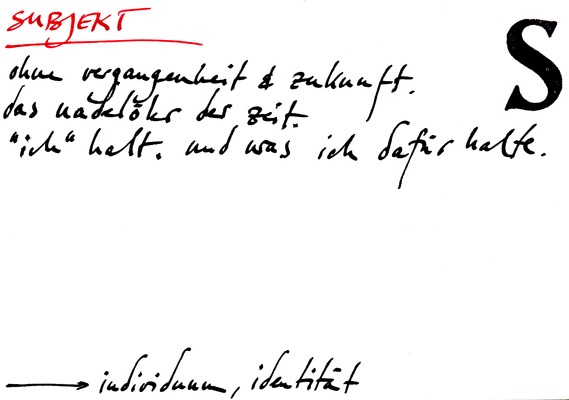 SUBJEKT
S
ohne vergangenheit & zukunft.
das nadelöhr der zeit.
"ich" halt. und was ich dafür halte.
→ individuum, identität